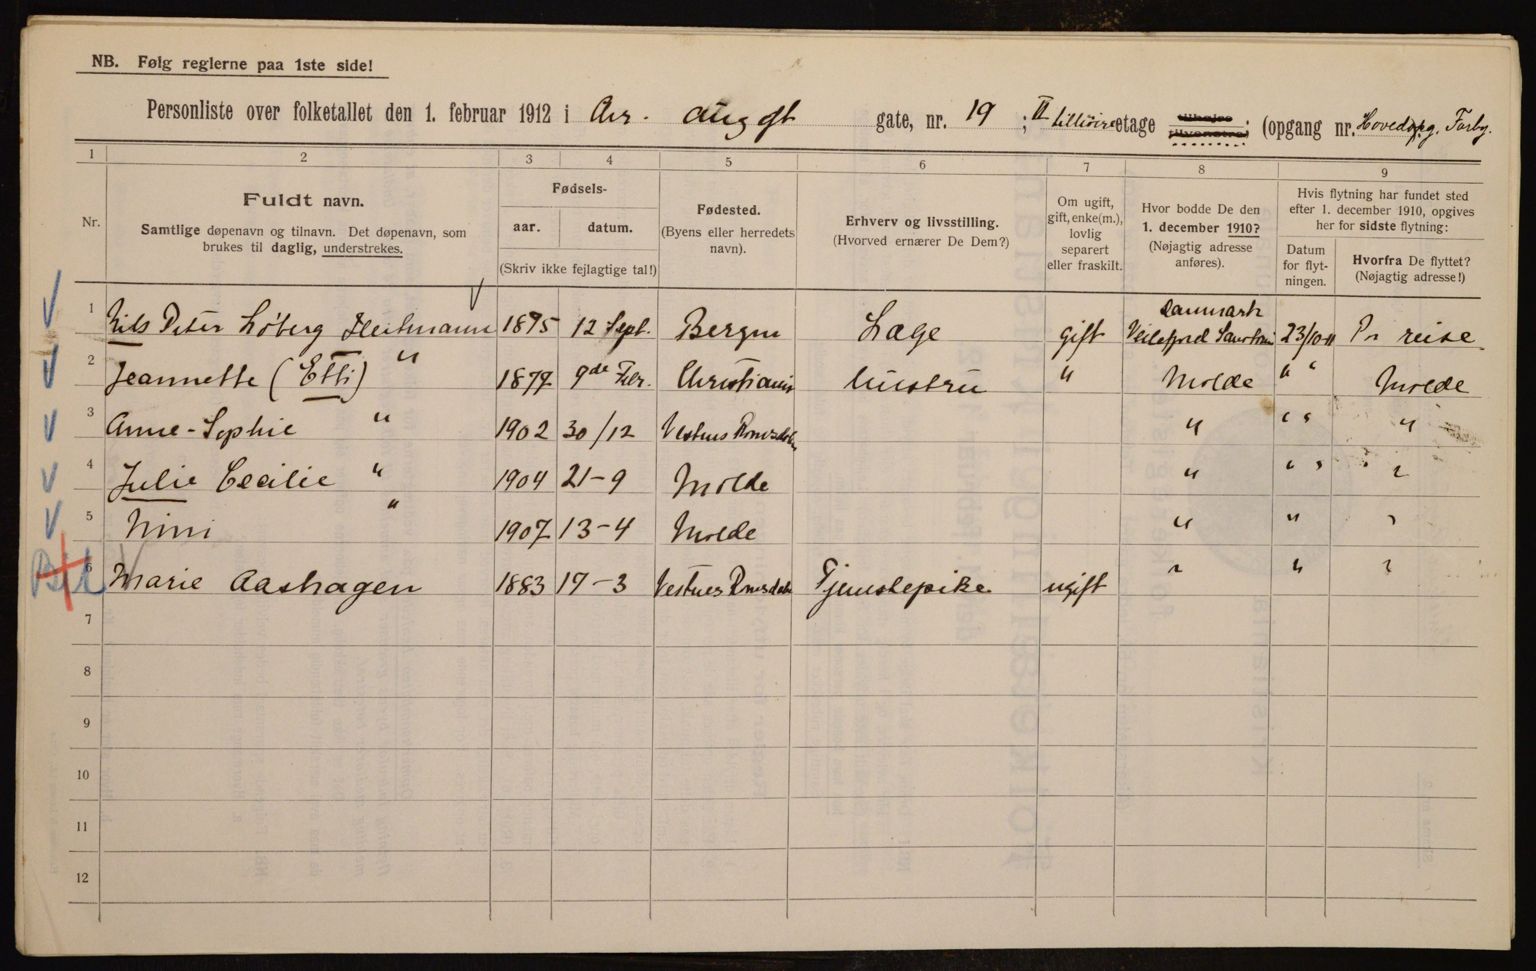 NB. Følg reglerne paa 1ste side!
Personliste over folketallet den 1. februar 1912 i gate, nr. 19 ; II etage tilhøjre tilvenstre; (opgang nr. Hovedopg. Forby.
1 2 3 4 5 6 7 8 9
Nr.
Fuldt navn.
Samtlige døpenavn og tilnavn. Det døpenavn, som
brukes til daglig, understrekes.
Fødsels-
aar. datum.
(Skriv ikke fejlagtige tal!)
Fødested.
(Byens eller herredets
navn).
Erhverv og livsstilling.
(Hvorved ernærer De Dem?)
Om ugift,
gift, enke(m.),
lovlig
separert
eller fraskilt.
Hvor bodde De den
1. december 1910?
(Nøjagtig adresse
anføres).
Hvis flytning har fundet sted
efter 1. december 1910, opgives
her for sidste flytning:
Datum
for flyt-
ningen.
Hvorfra De flyttet?
(Nøjagtig adresse!)
1 Nils Peter Løberg Heitmann 1875 12 Sept. Bergen Læge gift Danmark Veilefjord 23/10-11 Pr reise
2 Jeannette (Etti) " 1877 9de Febr. Christiania Hustru " Molde " " Molde
3 Anne-Sophie " 1902 30/12 Vestnes Romsdalen " " " "
4 Julie Cecilie " 1904 21-9 Molde " " " " "
5 Nini " 1907 13-4 Molde " " "
6 Marie Aashagen 1883 17-3 Vestnes Romsdalen Tjenestepike ugift " " "
7
8
9
10
11
12